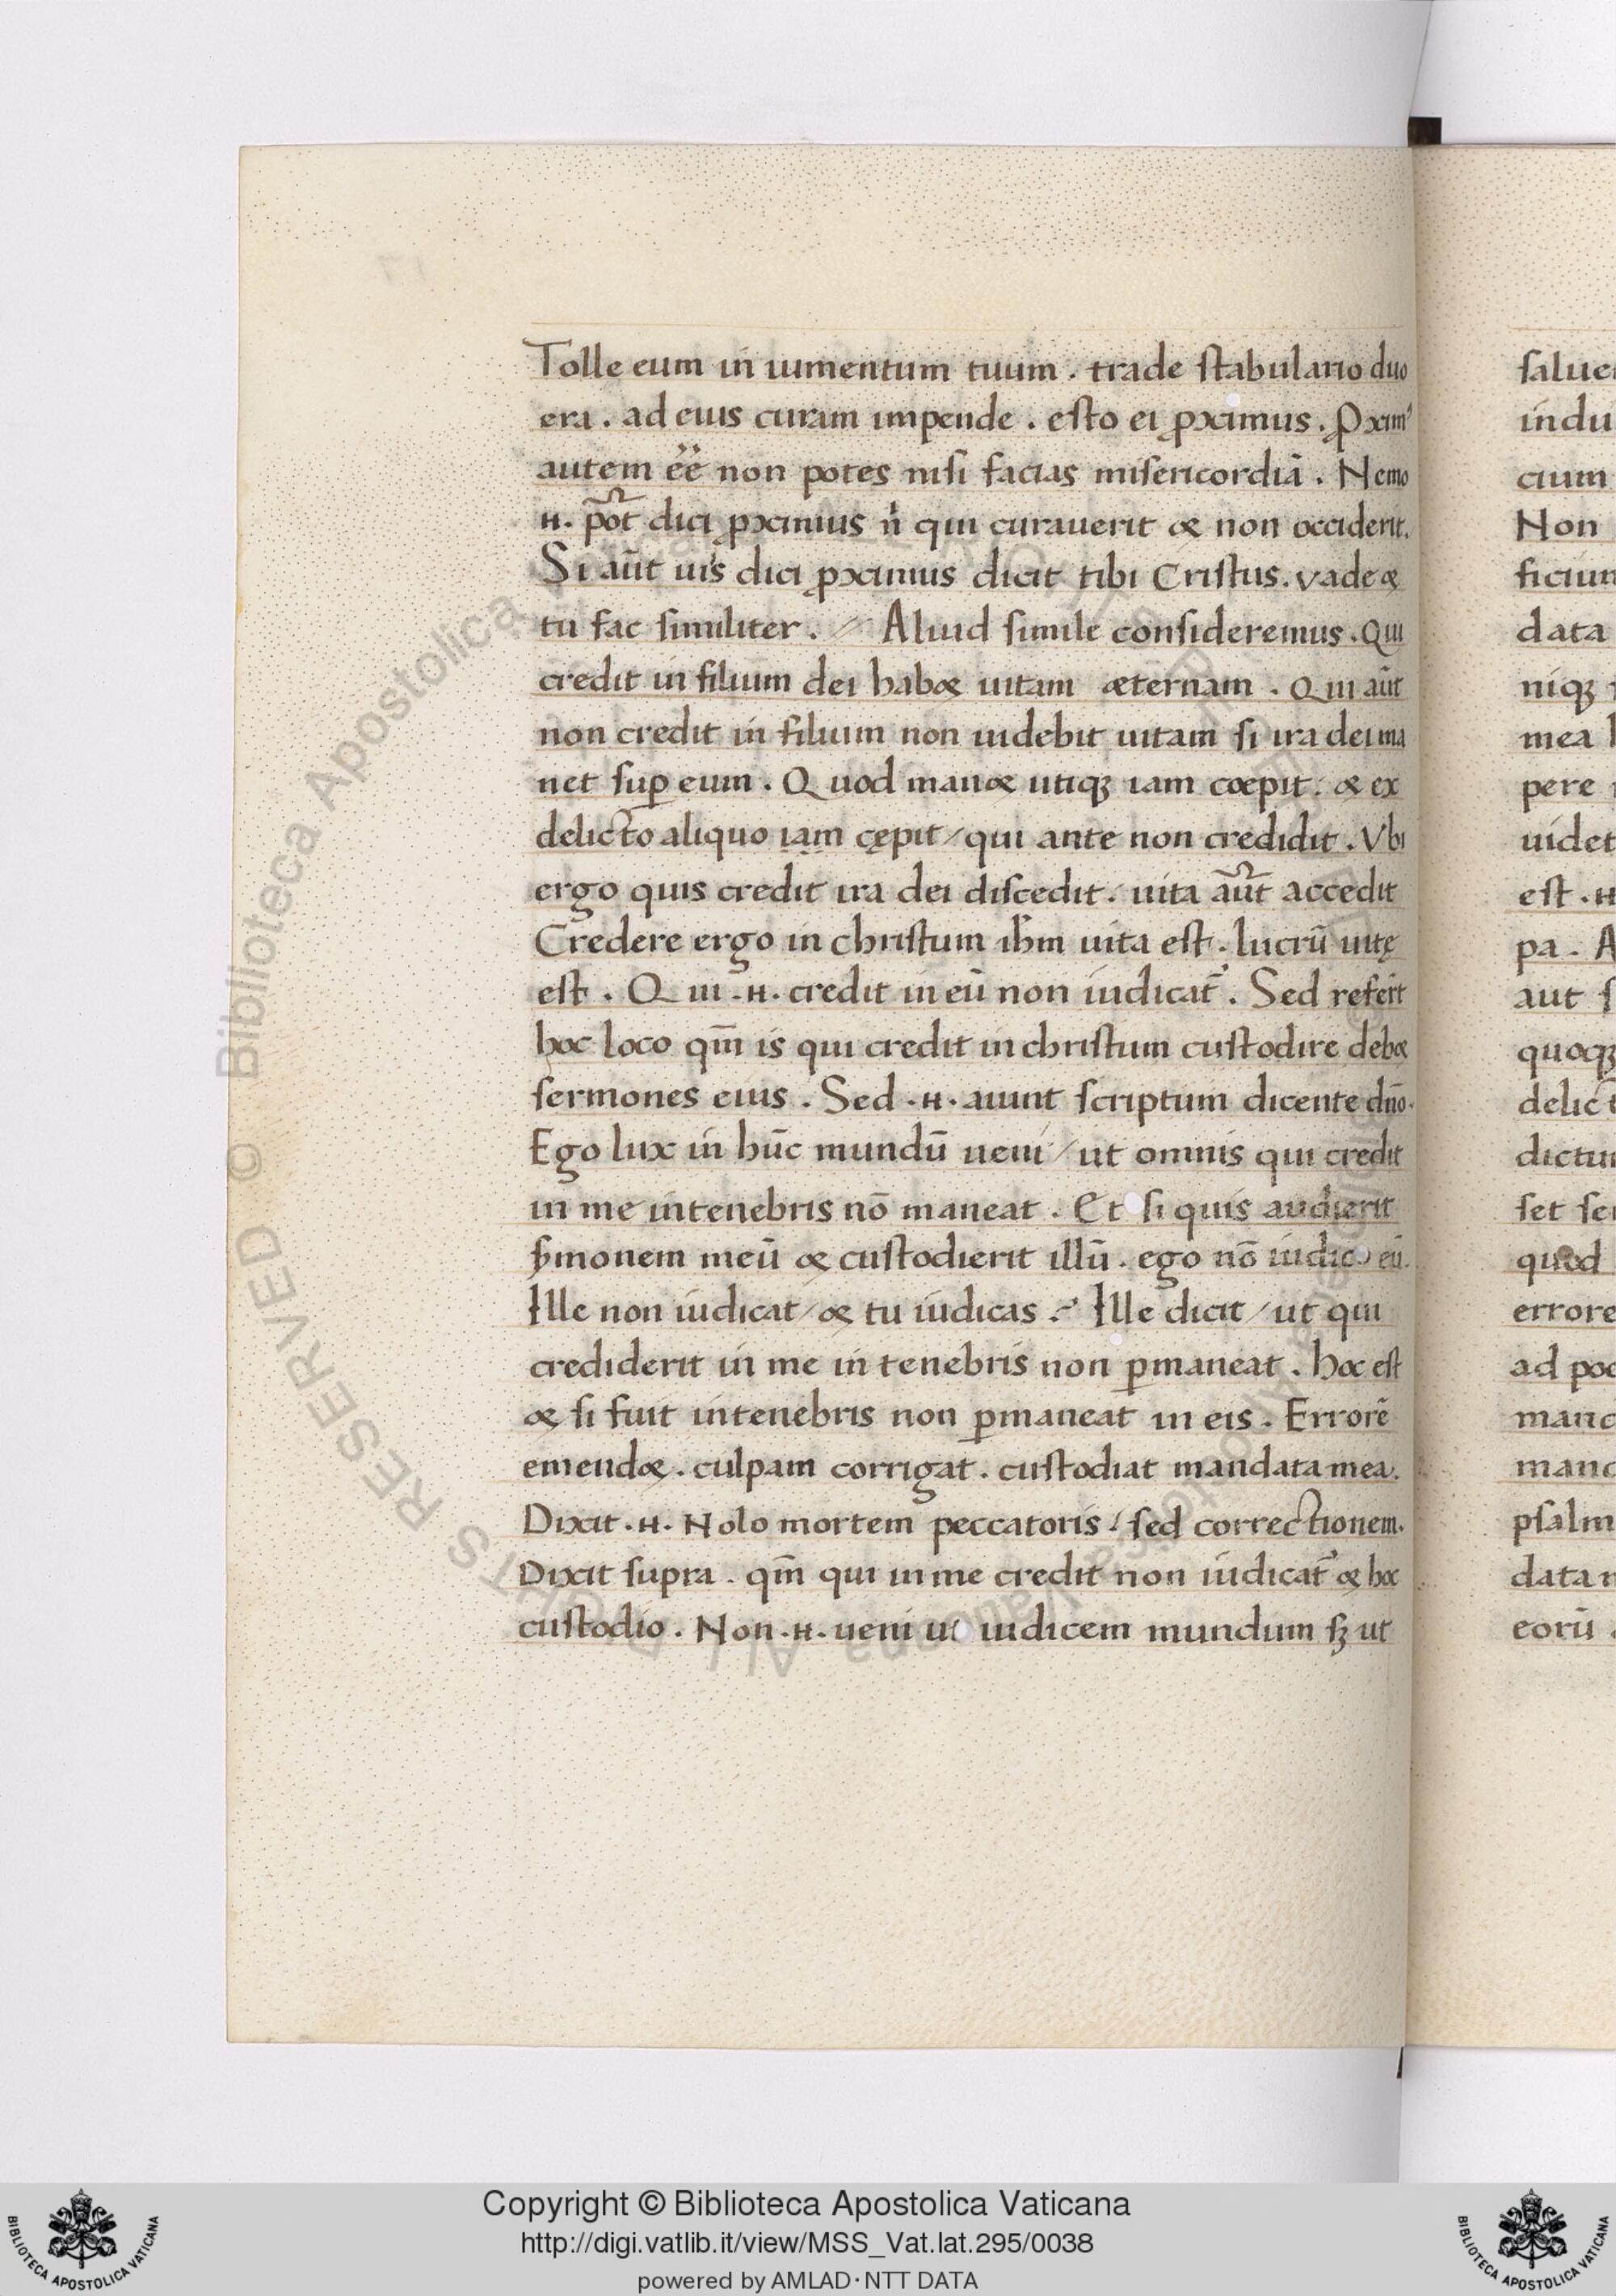 Tolle eum in iumentum tuum . trade stabulario duo
era . ad eius curam impende . esto ei ꝓximus . Ꝓxim⁹
autem ee̅ non potes nisi facias misericordia̅ . Nemo
.H. po̅t dici ꝓximus n̅ qui curauerit & non occiderit.
Si au̅t uis dici ꝓximus dicit tibi Cristus . vade &
tu fac similiter . Aliud simile consideremus . Qui
credit in filium dei hab& uitam æternam . Qui au̅t
non credit in filium non uidebit uitam si ira dei ma
net suꝑ eum . Quod man& utiqꝫ iam cœpit . & ex
delicto aliquo iam cępit / qui ante non credidit . Vbi
ergo quis credit ira dei discedit . uita au̅t accedit
Credere ergo in christum ih̅m uita est . lucru̅ uitę
est . Qui .H. credit in eu̅ non iudicat᷑ . Sed refert
hoc loco qm̅ is qui credit in christum custodire deb&
sermones eius . Sed .H. aiunt scriptum dicente dn̅o .
Ego lux in hu̅c mundu̅ ueni / ut omnis qui credit
in me in tenebris no̅ maneat . Et si quis audierit
s̅monem meu̅ & custodierit illu̅ . ego no̅ iudico eu̅ .
Ille non iudicat / & tu iudicas ? Ille dicit / ut qui
crediderit in me in tenebris non ꝑmaneat . hoc est
& si fuit in tenebris non ꝑmaneat in eis . Errore̅
emend& . culpam corrigat . custodiat mandata mea .
Dixit .H. Nolo mortem peccatoris / sed correctionem .
Dixit supra . qm̅ qui in me credit non iudicat᷑ & hoc
custodio . Non .H. ueni ut iudicem mundum sꝫ ut
salue
indu
cium
Non
ficium
data
niqꝫ
mea
pere
uidet
est . H
pa . A
aut s
quoqꝫ
delict
dictu
set se
quod
errore
ad poe
mand
mand
psalm
data
eoru̅
Biblioteca Apostolica Vaticana
ALL RIGHTS RESERVED ©
Copyright © Biblioteca Apostolica Vaticana
http://digi.vatlib.it/view/MSS_Vat.lat.295/0038
powered by AMLAD·NTT DATA
BIBLIOTECA APOSTOLICA VATICANA
BIBLIOTECA APOSTOLICA VATICANA